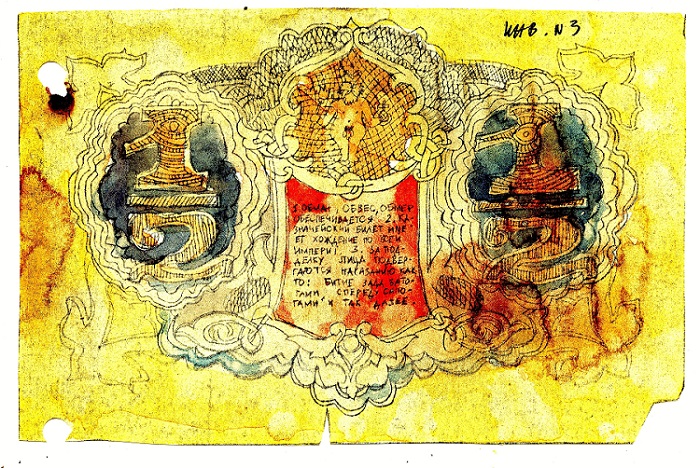 ИНВ. N 3
1 5
1 5
1 ОБМАН, ОБВЕС, ОБМЕР
ОБЕСПЕЧИВАЕТСЯ 2. КА-
ЗНАЧЕЙСКИЙ БИЛЕТ ИМЕ-
ЕТ ХОЖДЕНИЕ ПО ВСЕЙ
ИМПЕРИИ 3. ЗА ПОД-
ДЕЛКУ ЛИЦА ПОДВЕР-
ГАЮТСЯ НАКАЗАНИЮ КАК
ТО: БИТИЕ ЗАДА БАТО-
ГАМИ СПЕРЕДУ
ТАМИ И ТАК ДАЛЕЕ